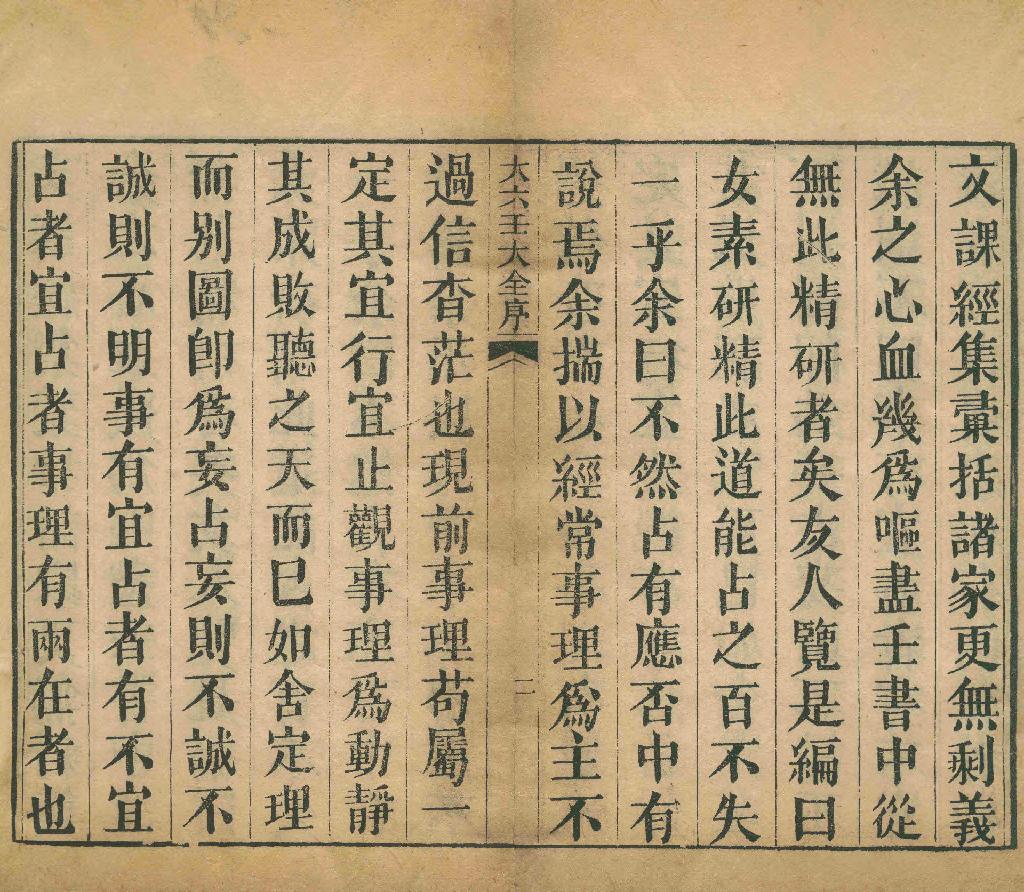 文課經集彙括諸家更無剩義
余之心血幾爲嘔盡壬書中從
無此精研者矣友人覽是編曰
女素研精此道能占之百不失
一乎余曰不然占有應否中有
說焉余揣以經常事理爲主不
大六壬大全序 二
過信杳茫也現前事理苟屬一
定其宜行宜止觀事理爲動靜
其成敗聽之天而巳如舍定理
而別圖卽爲妄占妄則不誠不
誠則不明事有宜占者有不宜
占者宜占者事理有兩在者也